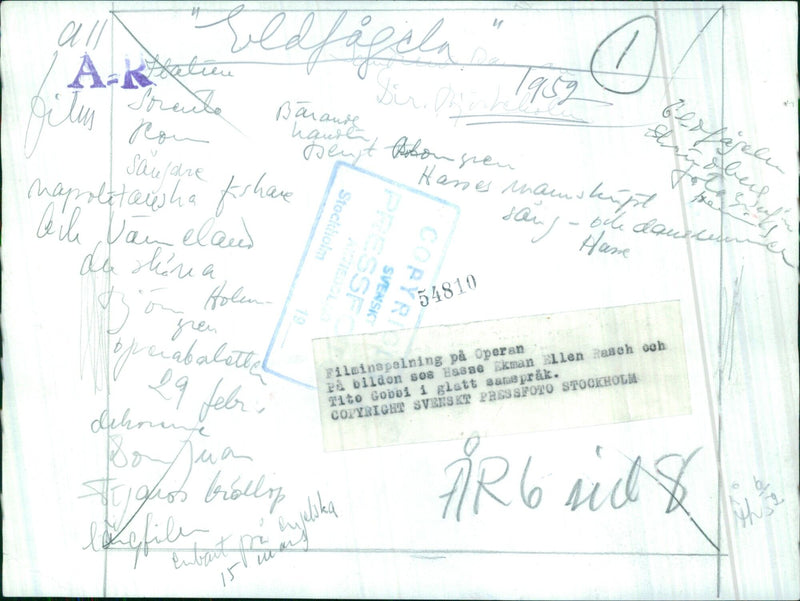 all
"Eldfågeln"
1
1952
A-R
Italien
film
Sorento
Rom
sångare
napolitanska fiskare
och Värmeland
du sköna
Holm-
gren
operabaletten
29 febr.
Don Juan
Figaros bröllop
långfilm
enbart på engelska
15 mars
Bärande
Bengt Holmgren
Hasses manuskript
sång - och dansnummer
Hasse
Eldfågeln
COPYRIGHT
SVENSKT
PRESSFOTO
Stockholm
19
54810
Filminspelning på Operan
På bilden ses Hasse Ekman Ellen Rasch och
Tito Gobbi i glatt samspråk.
COPYRIGHT SVENSKT PRESSFOTO STOCKHOLM
ÅR 6 sid 8